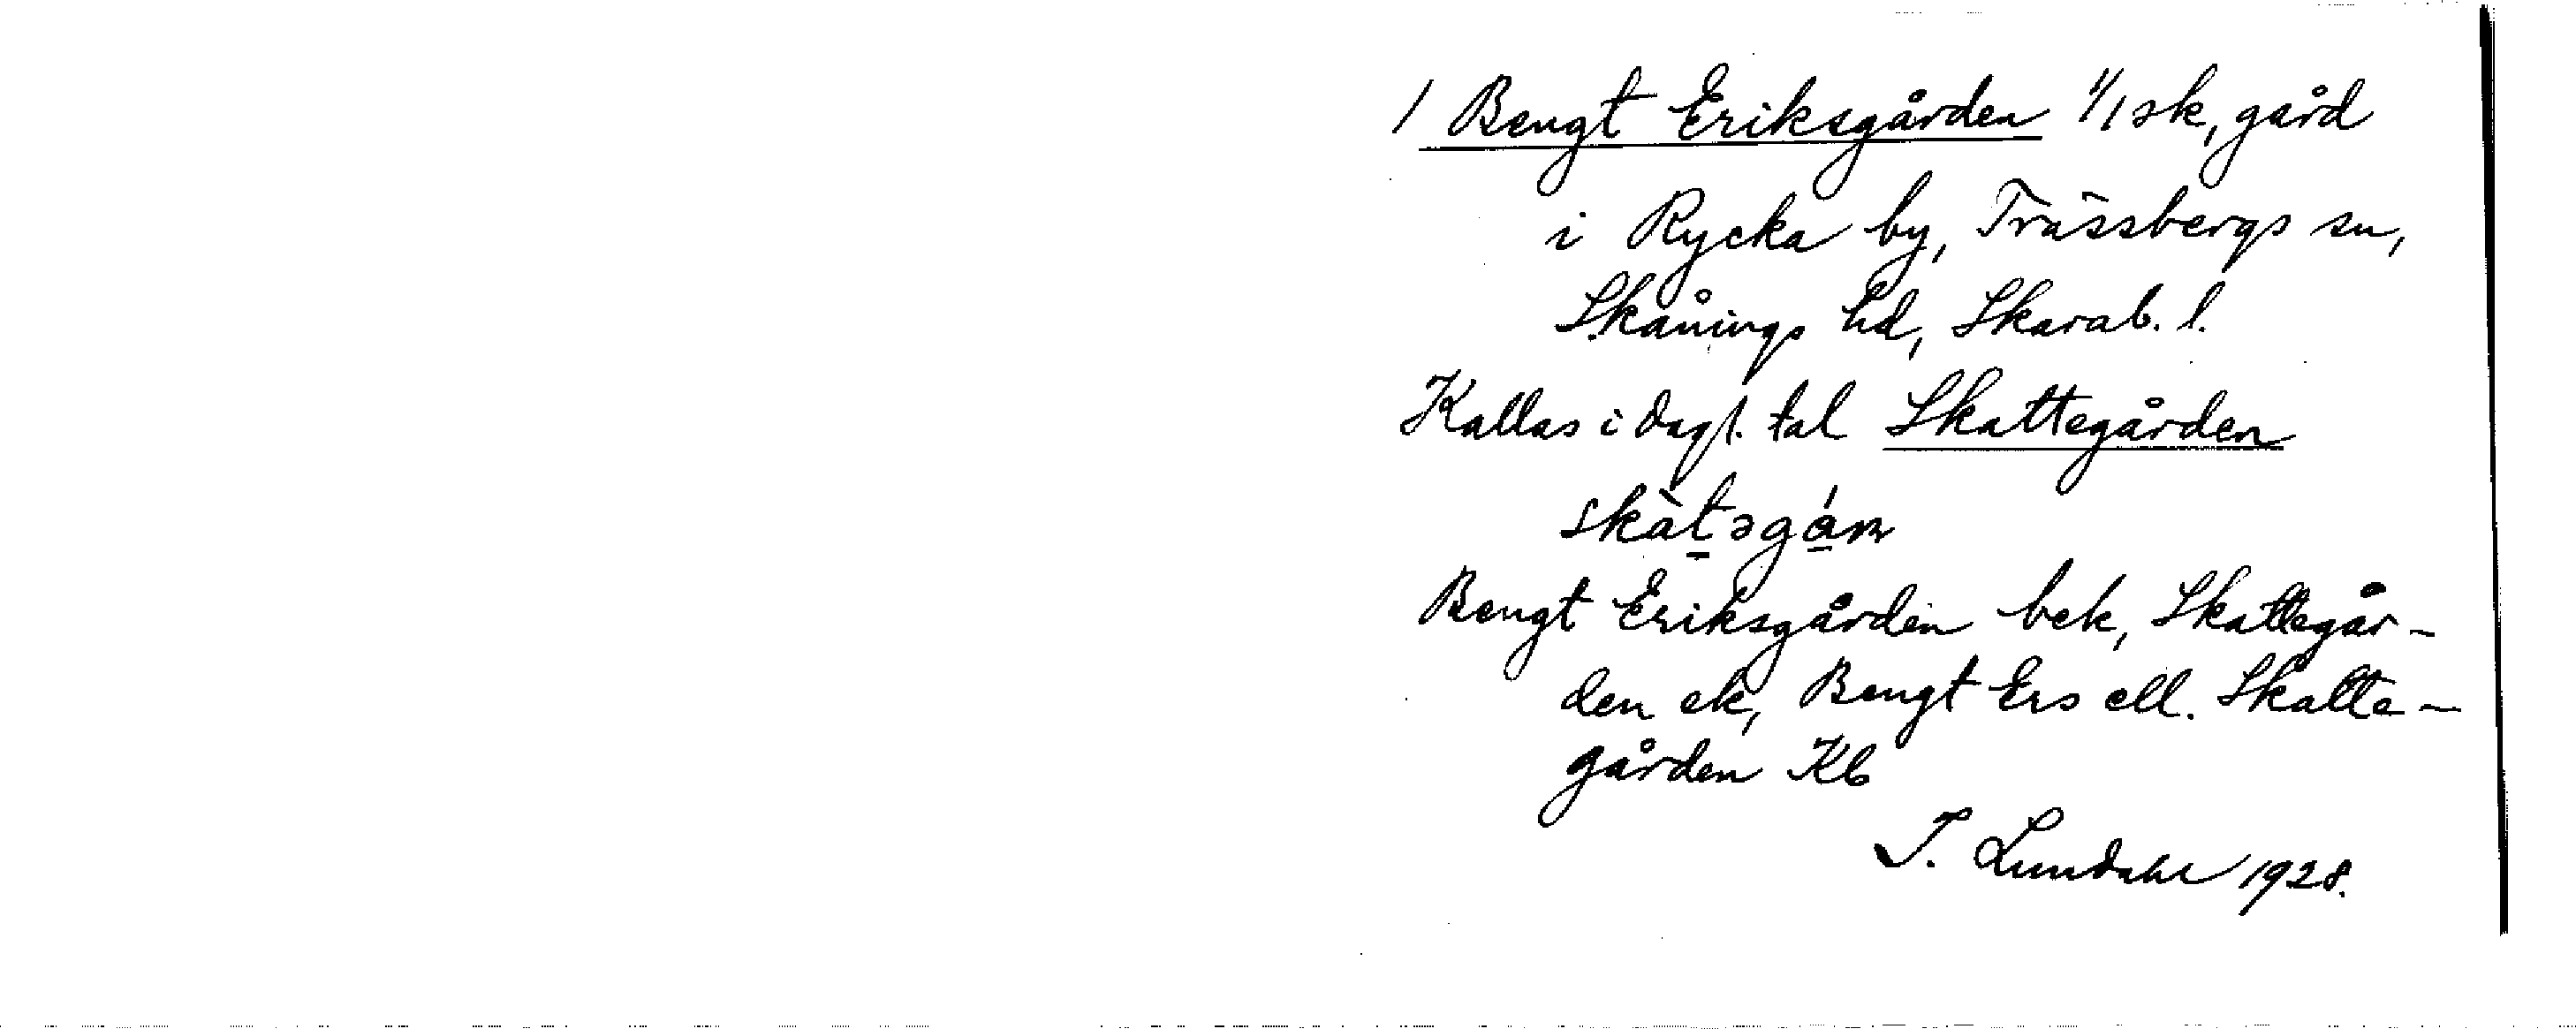 1 Bengt Eriksgården 1/1 sk, gård
i Rycka by, Trässbergs sn,
Skånings hd, Skarab. l.
Kallas i dagl. tal Skattegården
skàtəgán
Bengt Eriksgården bek, Skattegår-
den ek, Bengt Ers ell. Skatte-
gården Kb
T. Lundahl 1928.